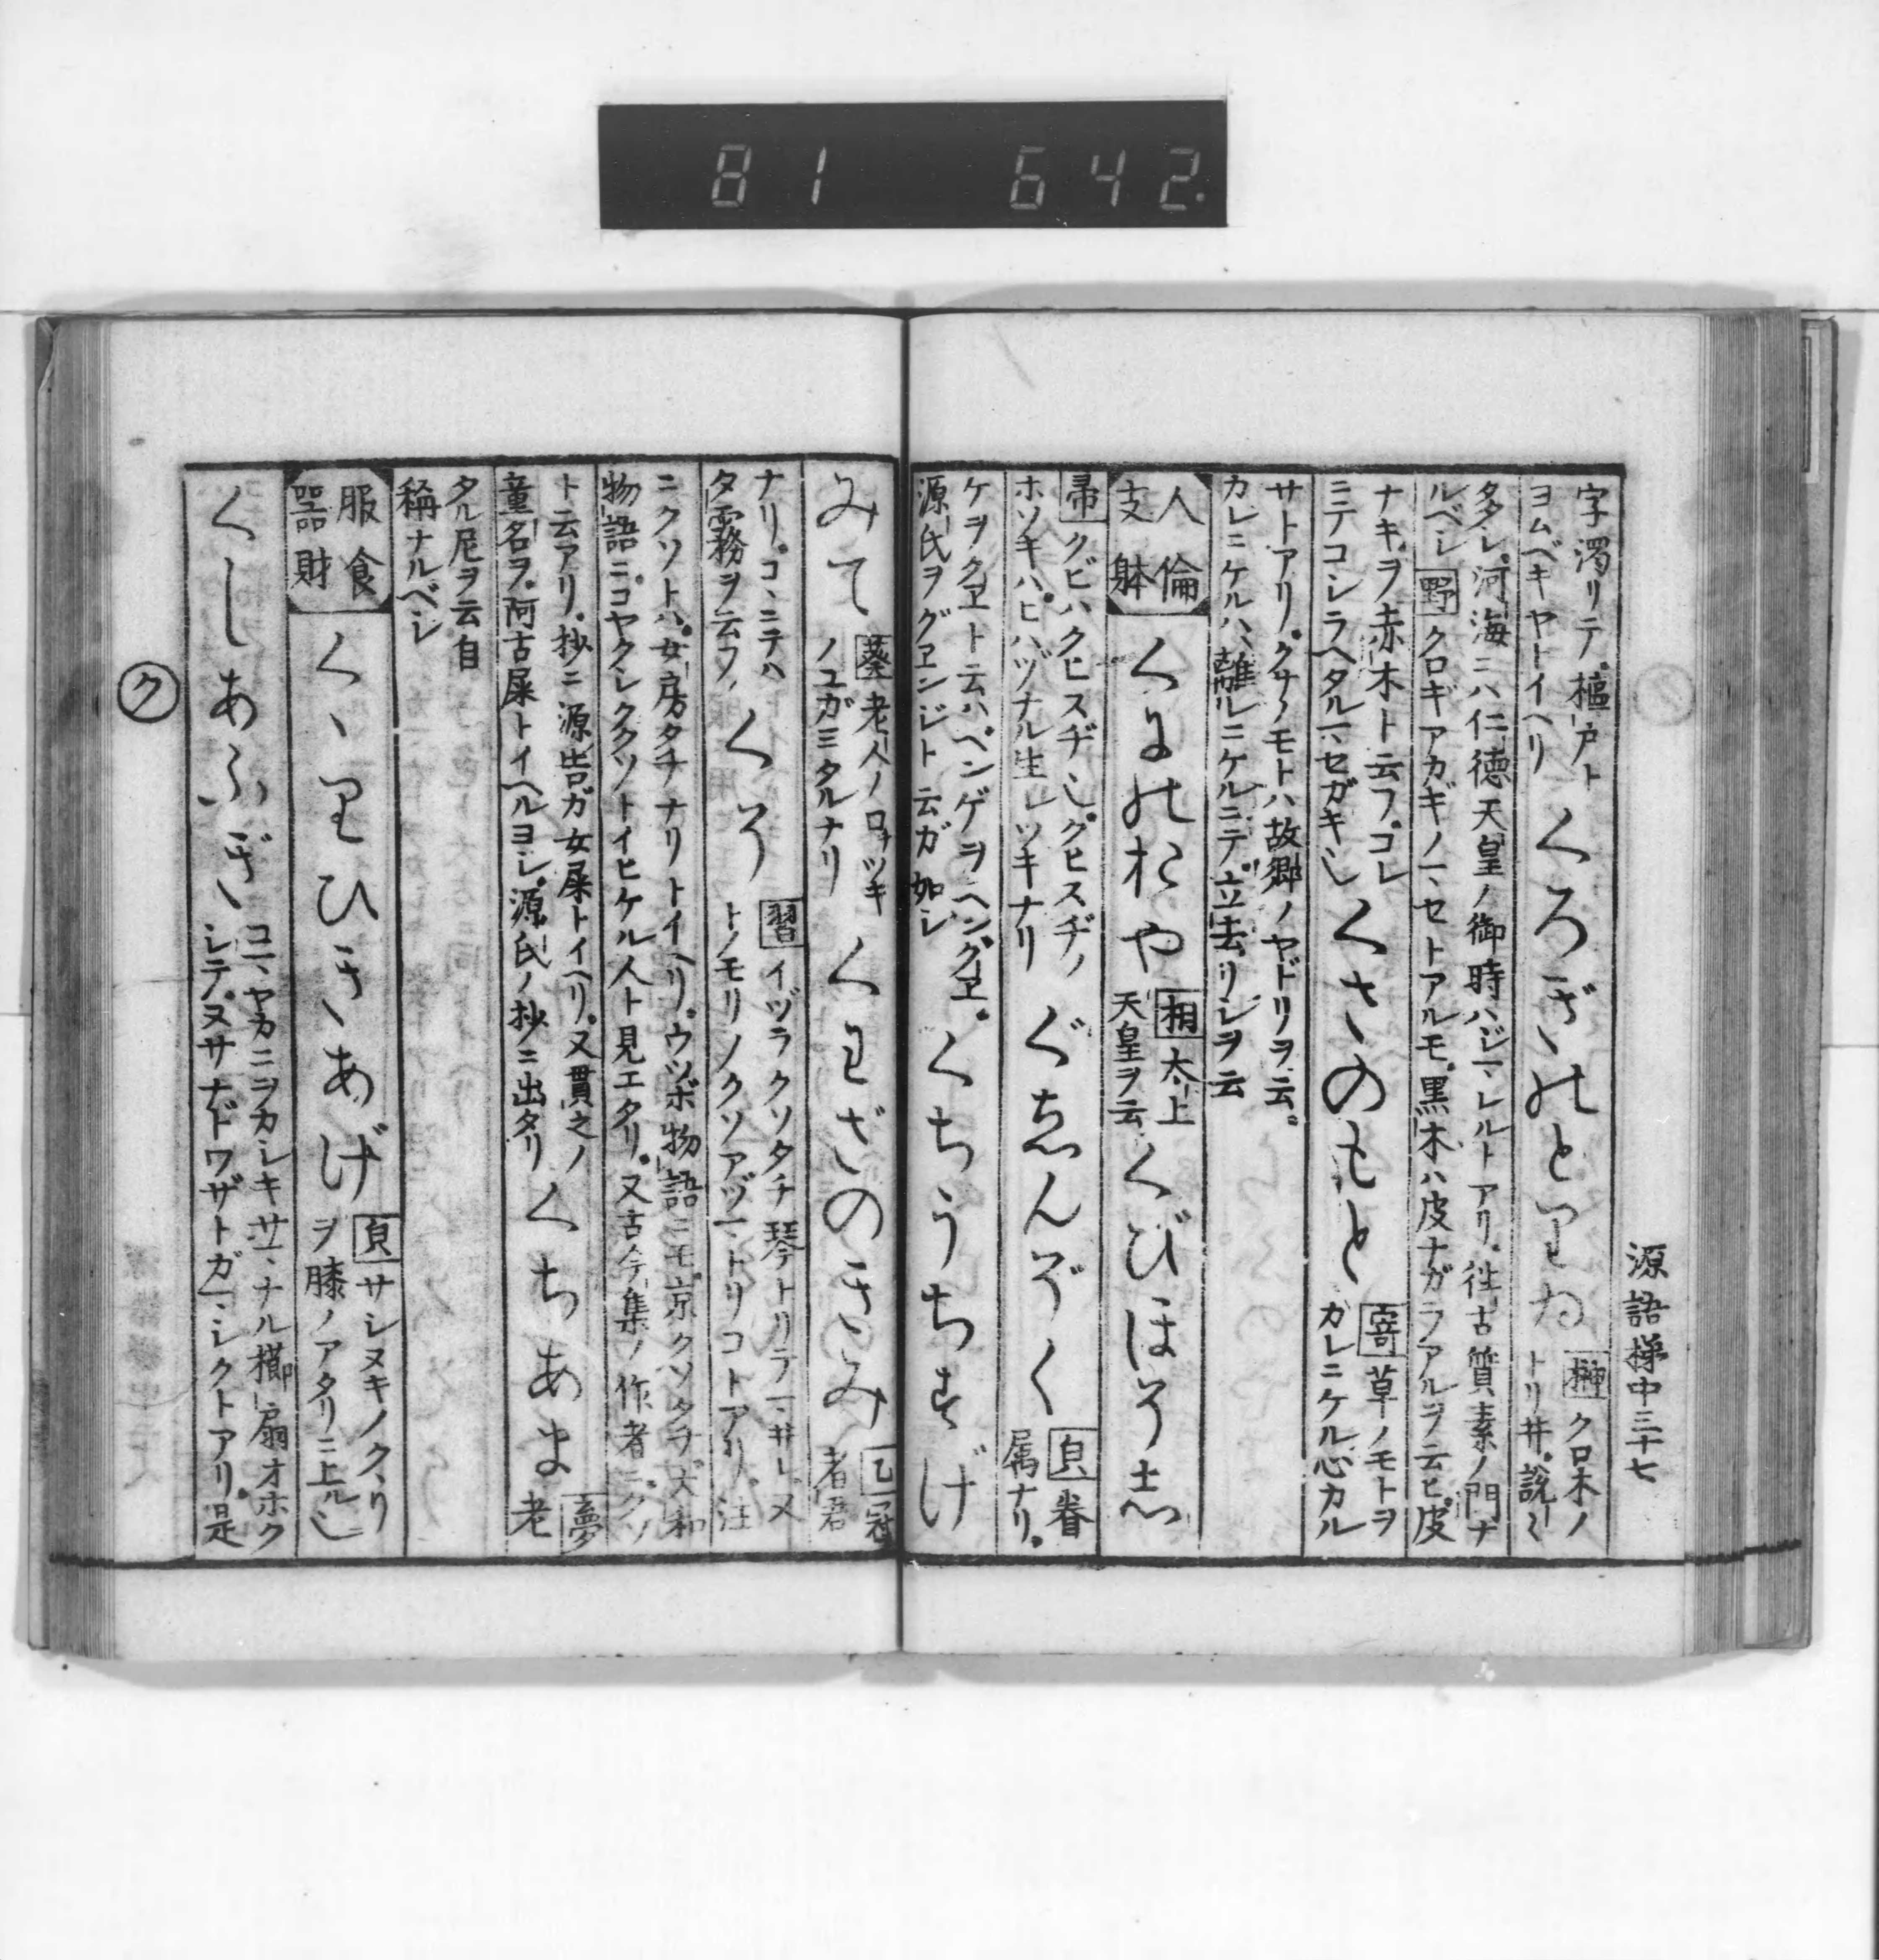 81 642
源語梯中三十七
字濁リテ樞戸ト
ヨムベキヤトイヘリ
くろぎのとりゐ
榊 クロ木ノ
トリ井説々
多シ河海ニハ仁徳天皇ノ御時ハジマレルトアリ往古質素ノ門ナ
ルベシ 野 クロギアカギノヿ、セトアルモ黒木ハ皮ナガラアルヲ云ヒ皮
ナキヲ赤木ト云フコレ
ニテコシラヘタルヿ、セガキ也
くさのもと
草ノモトヲ
カレニケル心カル
サトアリクサノモトハ故郷ノヤドリヲ云
カレニケルハ離ルニケルニテ立去リシヲ云
人倫
支躰
くにのおや
相 太上
天皇ヲ云
くびほそし
帚 クビハクヒスヂ也クヒスヂノ
ホソキハヒハヅナル生レツキナリ
ぐゑんぞく
眷
属ナリ
ケヲクヱト云ハヘンゲヲヘングヱ
源氏ヲグヱンジト云ガ如シ
くちうちすげ
みて
葵 老人ノ口ツキ
ノユガミタルナリ
くわざのきみ
乙 冠
者君
ナリコヽニテハ
夕霧ヲ云フ
くそ
習 イヅラクソタチ琴トリテマ井レヌ
トノモリノクソアヅマトリコトアリ注
ニクソトハ女房タチナリトイヘリウツボ物語ニモ京クソタチ大和
物語ニコヤクシククソトイヒケル人ト見エタリ又古今集ノ作者ニクソ
ト云アリ抄ニ源告ガ女屎トイヘリ又貫之ノ
童名ヲ阿古屎トイヘルヨシ源氏ノ抄ニ出タリ
くちあま
夢
老
タル尼ヲ云自
稱ナルベシ
服食
器財
くゝりひきあげ
サシヌキノクヽリ
ヲ膝ノアタリニ上ル也
くしあふぎ
コマヤカニヲカシキサマナル櫛扇オホク
シテヌサナドワザトガマシクトアリ是
ク